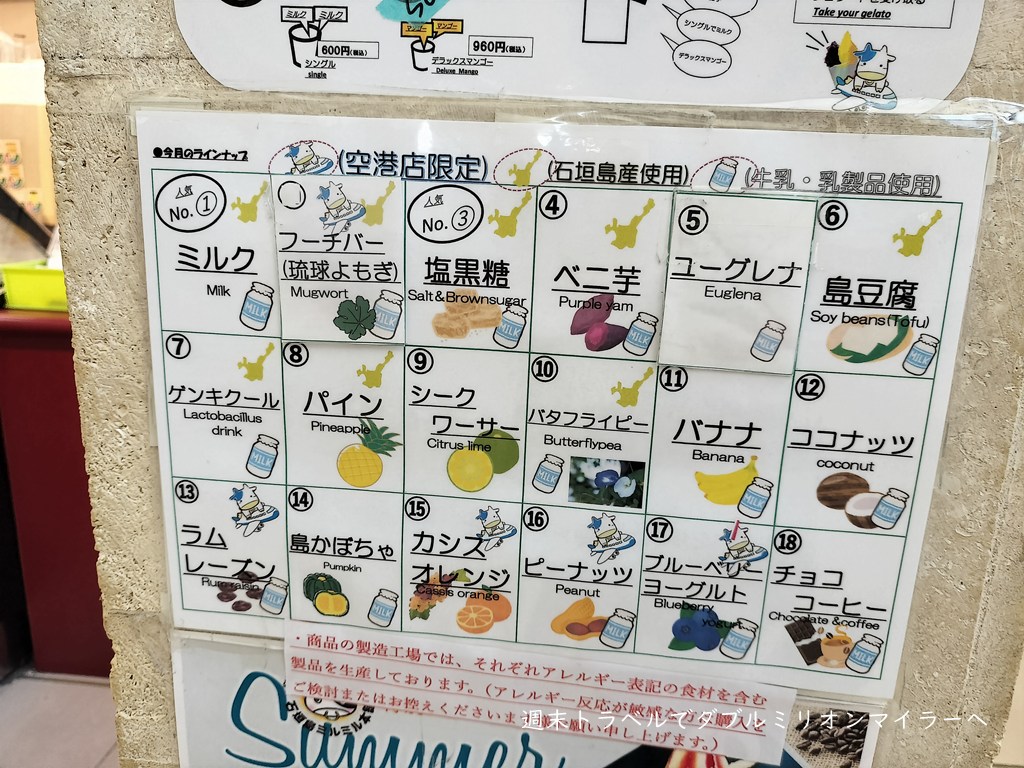 ミルク ミルク
600円(税込)
シングル
single
マンゴー マンゴー
960円(税込)
デラックスマンゴー
Deluxe Mango
シングルでミルク
デラックスマンゴー
Take your gelato
●今月のラインナップ
(空港店限定)
(石垣島産使用)
(牛乳・乳製品使用)
人気
No. ①
ミルク
Milk
MILK
フーチバー
(琉球よもぎ)
Mugwort
MILK
人気
No. ③
塩黒糖
Salt&Brownsugar
MILK
④
ベニ芋
Purple yam
MILK
⑤
ユーグレナ
Euglena
MILK
⑥
島豆腐
Soy beans(Tofu)
MILK
⑦
ゲンキクール
Lactobacillus
drink
MILK
⑧
パイン
Pineapple
⑨
シーク
ワーサー
Citrus lime
⑩
バタフライピー
Butterflypea
MILK
⑪
バナナ
Banana
MILK
⑫
ココナッツ
coconut
MILK
⑬
ラム
レーズン
Rum raisin
MILK
⑭
島かぼちゃ
Pumpkin
MILK
⑮
カシス
オレンジ
Cassis orange
⑯
ピーナッツ
Peanut
MILK
⑰
ブルーベリー
ヨーグルト
Blueberry
yogurt
MILK
⑱
チョコ
コーヒー
Chocolate &coffee
MILK
・商品の製造工場では、それぞれアレルギー表記の食材を含む
製品を生産しております。(アレルギー反応が敏感な方
ご検討またはお控えくださいま
願い申し上げます。)
Summer
週末トラベルでダブルミリオンマイラーへ